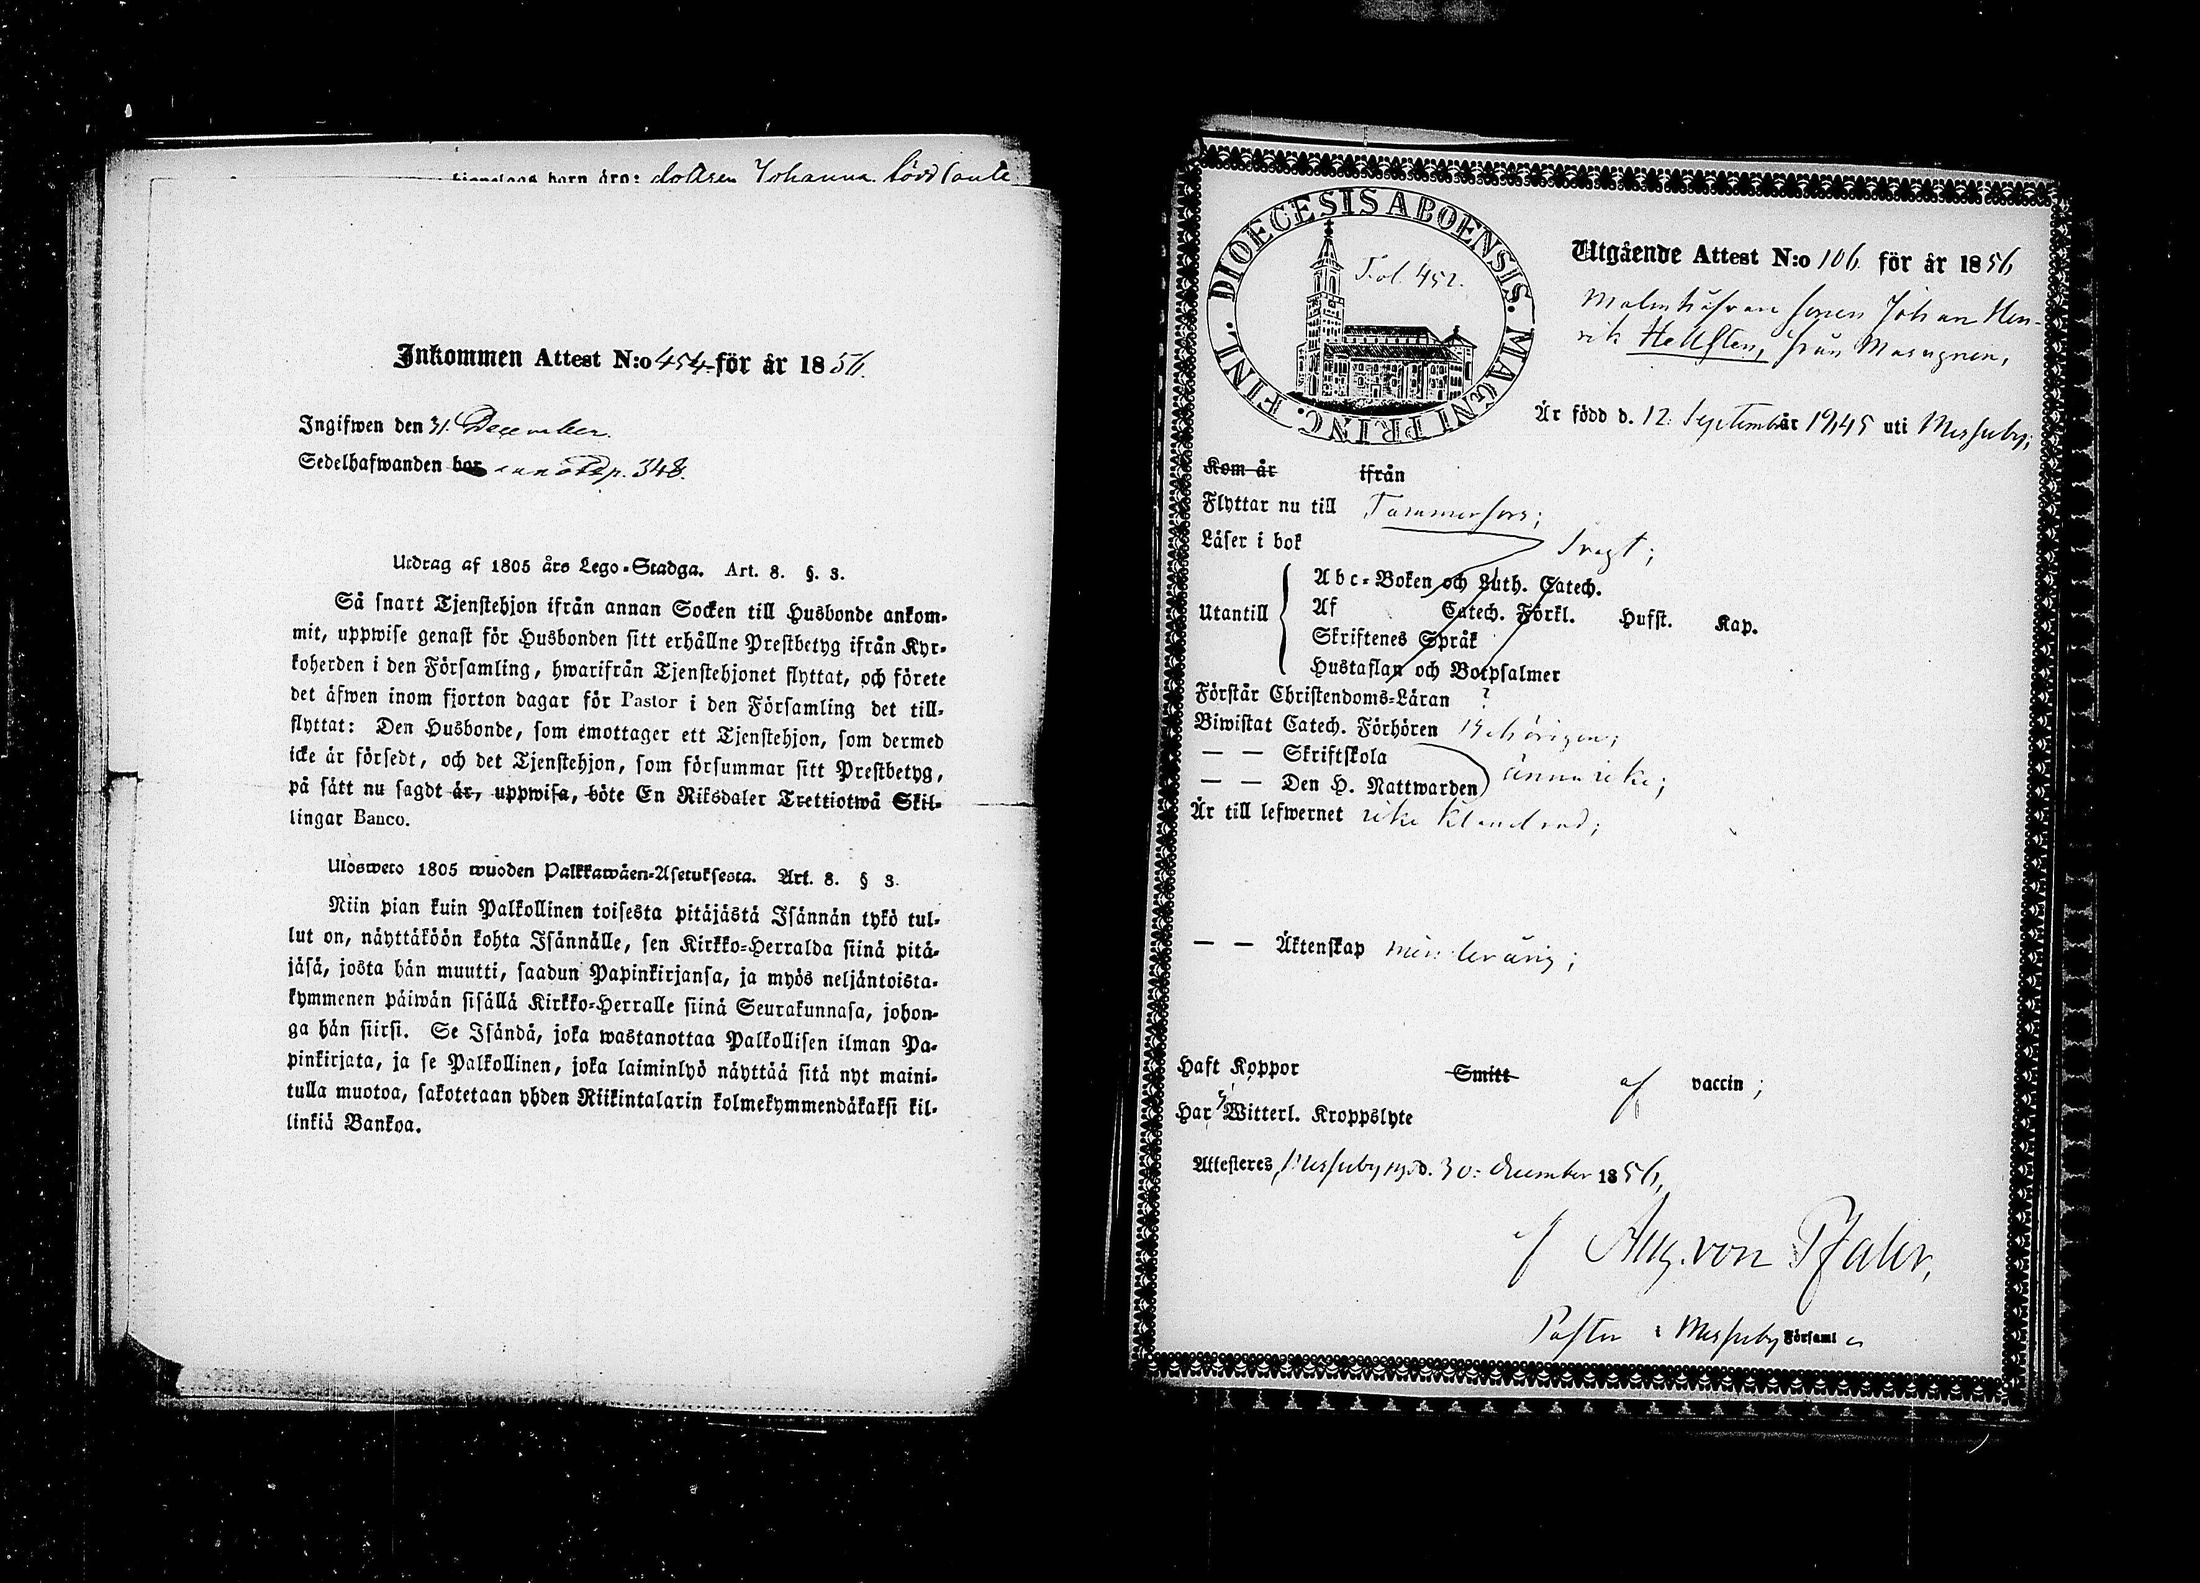 barn äro: dottren Johanna född
Inkommen Attest N:o 454 för år 1856.
Ingifwen den 31. December.
Sedelhafwanden har annot. p. 348.
Utdrag af 1805 års Lego-Stadga. Art. 8. §. 3.
Så snart Tjenstehjon ifrån annan Socken till Husbonde ankom-
mit, uppwise genast för Husbonden sitt erhållne Prestbetyg ifrån Kyr-
koherden i den Församling, hwarifrån Tjenstehjonet flyttat, och förete
det äfwen inom fjorton dagar för Pastor i den Församling det till-
flyttat: Den Husbonde, som emottager ett Tjenstehjon, som dermed
icke är försedt, och det Tjenstehjon, som försummar sitt Prestbetyg,
på sätt nu sagdt är, uppwisa, böte En Riksdaler Trettiotwå Skil-
lingar Banco.
Ulosweto 1805 wuoden Palkkawäen-Asetuksesta. Art. 8. § 3.
Niin pian kuin Palkollinen toisesta pitäjästä Isännän tykö tul-
lut on, näyttäköön kohta Isännälle, sen Kirkko-Herralda siinä pitä-
jäsä, josta hän muutti, saadun Papinkirjansa, ja myös neljäntoista-
kymmenen päiwän sisällä Kirkko-Herralle siinä Seurakunnasa, johon-
ga hän siirsi. Se Isändä, joka wastanottaa Palkollisen ilman Pa-
pinkirjata, ja se Palkollinen, joka laiminlyö näyttää sitä nyt maini-
tulla muotoa, sakotetaan yhden Riikintalarin kolmekymmendäkaksi kil-
linkiä Bankoa.
DIOECESIS ABOENSIS. MAGNI PRINC. FINL.
Fol. 452.
Utgående Attest N:o 106 för år 1856
sonen Johan Hen-
rik Hellsten, från Masugnen,
Är född d. 12. September år 1845 uti Messuby;
Kom år ifrån
Flyttar nu till Tammerfors;
Läser i bok svagt;
Utantill
Abc-Boken och Luth. Catech.
Af Catech. Förkl. Husst. Kap.
Skriftenes Språk
Hustaflan och Botpsalmer
Förstår Christendoms-Läran ?
Biwistat Catech. Förhören behörigen;
— — Skriftskola
— — Den H. Nattwarden ännu icke;
Är till lefwernet icke klandrad;
— — Äktenskap minderårig;
Haft Koppor Smitt af vaccin;
Har Witterl. Kroppslyte
Attesteres, Messuby d. 30. december 1856,
af Aug. von Pfaler,
Pastor i Messuby Församl